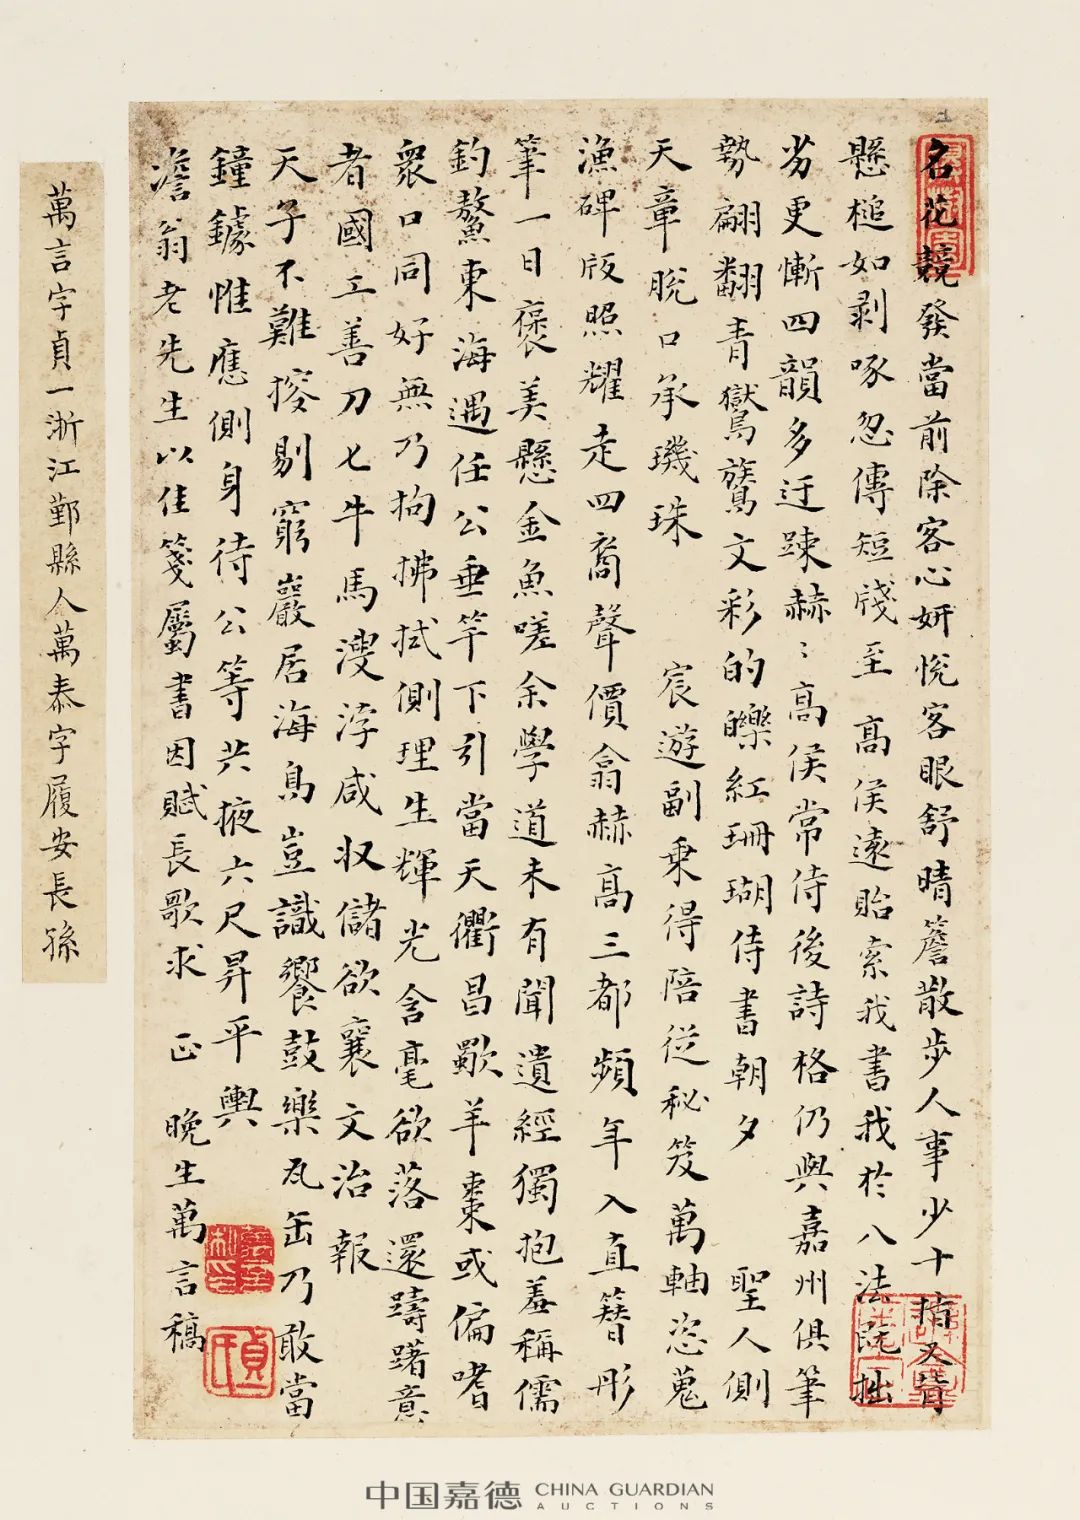 名花競發當前除客心妍悅客眼舒晴簷散步人事少十指又皆
懸槌如剥啄忽傳短牋至高侯遠貽索我書我於八法既拙
劣更慚四韻多迂疎赫〻高侯常侍後詩格仍與嘉州俱筆
勢翩翻青獄鸞鶱文彩的皪紅珊瑚侍書朝夕聖人側
天章脫口承璣珠宸遊副乘得陪從秘笈萬軸恣蒐
漁碑版照耀走四裔聲價翕赫高三都頻年入直簪彤
筆一日褒美懸金魚嗟余學道未有聞遺經獨抱羞稱儒
釣鰲東海遇任公垂竿下引當天衢昌歜羊棗或偏嗜
衆口同好無乃拘拂拭側理生輝光含毫欲落還躊躇意
者國工善刀匕牛馬溲浡咸収儲欲襄文治報
天子不難搜剔窮巖居海鳥豈識饗鼓樂瓦缶乃敢當
鐘鐻惟應側身待公等共掖六尺昇平輿
澹翁老先生以佳箋屬書因賦長歌求正晚生萬言稿
萬言字貞一浙江鄞縣人萬泰字履安長孫
中国嘉德 CHINA GUARDIAN AUCTIONS